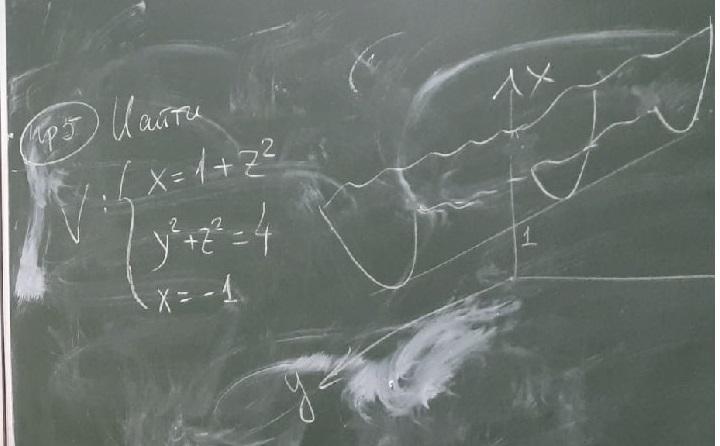 Пр5 Найти
V: { x = 1 + z²
y² + z² = 4
x = -1
x
1
y